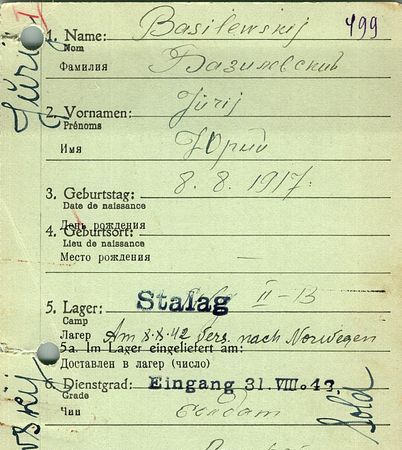 1. Name: Basilewskij 499
Nom
Фамилия Базилевский
Jürij I
2. Vornamen: Jürij
Prénoms
Имя Юрий
3. Geburtstag: 8. 8. 1917.
Date de naissance
День рождения
4. Geburtsort:
Lieu de naissance
Место рождения —
5. Lager: Stalag II-B
Camp
Лагер Am 8.8.42 Vers. nach Norwegen
5a. Im Lager eingeliefert am:
Доставлен в лагер (число)
6. Dienstgrad: Eingang 31. VIII. 43.
Grade
Чин солдат
Sold